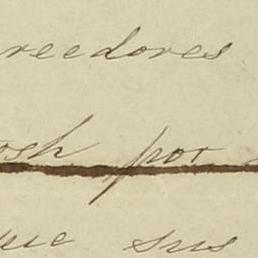 reedores
osh por
ue sus